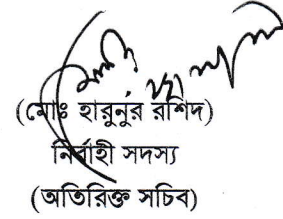 (মোঃ হারুনুর রশিদ)
নির্বাহী সদস্য
(অতিরিক্ত সচিব)